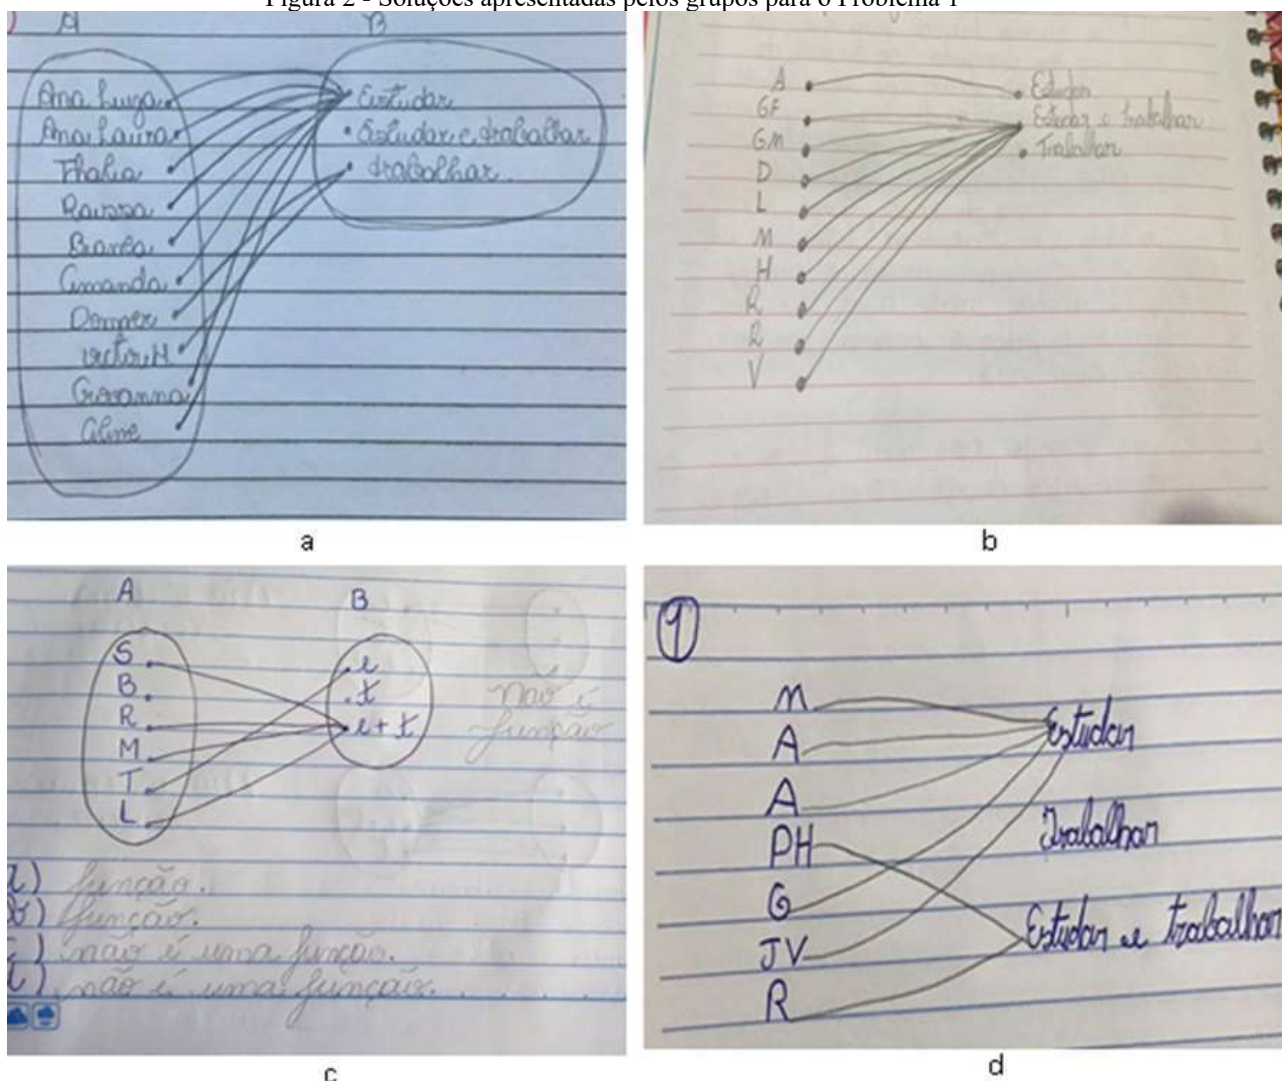 Figura 2 - Soluções apresentadas pelos grupos para o Problema 1
A B
Ana Luiza
Ana Laura
Thalia
Raissa
Bianca
Amanda
victor H
Giovanna
Aline
Estudar
Estudar e trabalhar
trabalhar
a
A
GF
GM
D
L
M
H
R
R
V
Estudar
Estudar e trabalhar
Trabalhar
b
A B
S
B
R
M
T
L
e
t
e + t
não é
função
função.
função.
não é uma função.
não é uma função.
c
1
M
A
A
PH
G
JV
R
Estudar
Trabalhar
Estudar e trabalhar
d